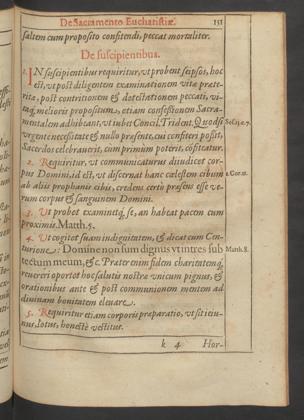 De Sacramento Eucharistiæ. 151
saltem cum proposito confitendi, peccat mortaliter.
De suscipientibus.
1. IN suscipientibus requiritur, vt probent seipsos, hoc
est, vt post diligentem examinationem vitæ præte-
ritæ, post contritionem & detestationem peccati, vi-
tæq́; melioris propositum, etiam confessionem Sacra-
mentalem adhibeant, vt iubet Concil. Trident. Quodsi Sess.13.c.7.
vrgente necessitate & nullo præsente, cui confiteri possit,
Sacerdos celebrauerit, cum primùm poterit, cōfiteatur.
2. Requiritur, vt communicaturus diiudicet cor- 1. Cor.11.
pus Domini, id est, vt discernat hunc cælestem cibum
ab aliis prophanis cibis, credens certò præsens esse ve-
rum corpus & sanguinem Domini.
3. Vt probet examinetq́; se, an habeat pacem cum
proximis. Matth. 5.
4. Vt cogitet suam indignitatem, & dicat cum Cen-
turione: Domine non sum dignus vt intres sub Matth.8.
tectum meum, &c. Præter enim fidem charitatemq́;
reuereri oportet hoc salutis nostræ vnicum pignus, &
orationibus ante & post communionem mentem ad
diuinam bonitatem eleuare.
5. Requiritur etiam corporis præparatio, vt sit ieiu-
nus, lotus, honestè vestitus.
k 4 Hor-